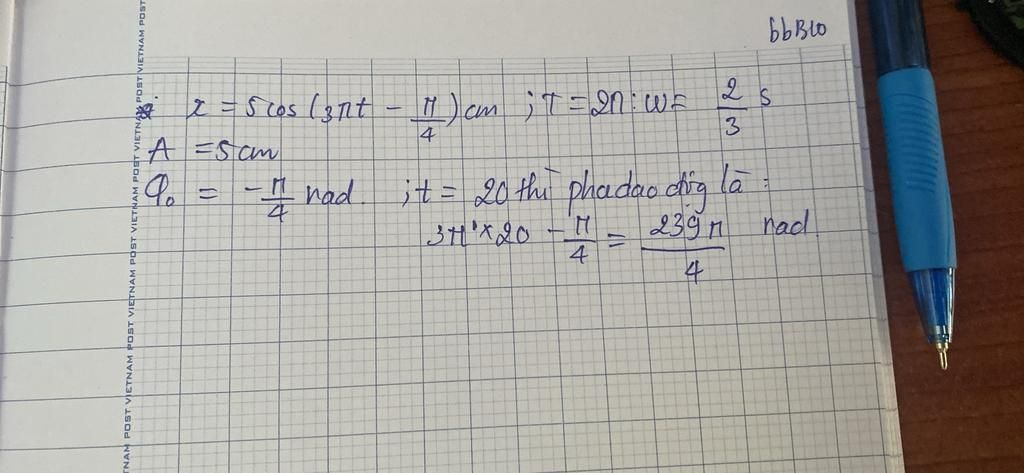 bbB10
x = 5cos(3πt - π/4) cm ; T = 2π : ω = 2/3 s
A = 5cm
φ₀ = -π/4 rad. ; t = 20 thì pha dao động là :
3π × 20 - π/4 = 239π/4 rad.
VIETNAM POST VIETNAM POST VIETNAM POST VIETNAM POST VIETNAM POST VIETNAM POST